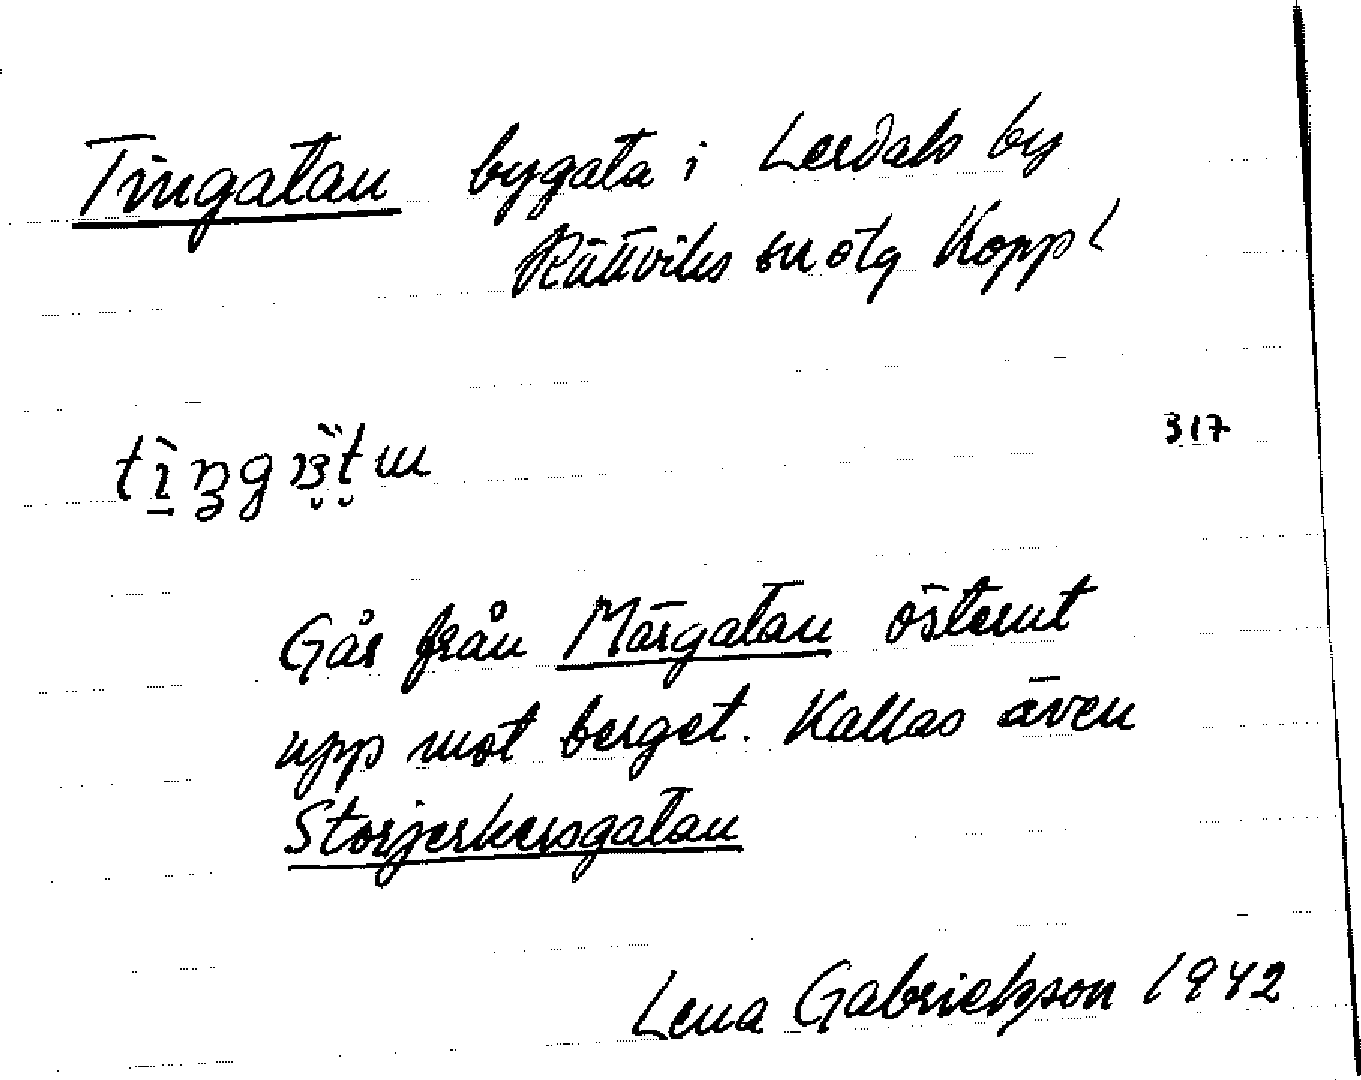 Tingatan bygata i Lerdals by
Rättviks sn ötg Koppl
317
Går från Märgatan österut
upp mot berget. Kallas även
Storjerkersgatan
Lena Gabrielsson 1942